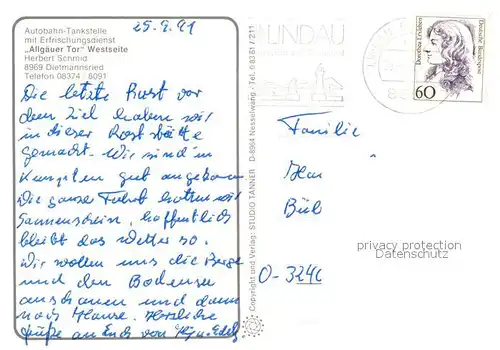 25.9.91
Autobahn-Tankstelle
mit Erfrischungsdienst
„Allgäuer Tor" Westseite
Herbert Schmid
8969 Dietmannsried
Telefon 08374 / 8091
Die letzte Rast vor
dem Ziel haben wir
in dieser Raststätte
gemacht. Wir sind in
gut angekommen
Die ganze Fahrt hatten wir
Sonnenschein, hoffentlich
bleibt das Wetter so.
Wir wollen uns die Berge
und den Bodensee
anschauen und dann
nach Hause. Herzliche
Grüße an Euch von
Copyright und Verlag: STUDIO TANNER D-8964 Nesselwang · Tel. 08361 / 211
LINDAU
Deutsche Bundespost
Dorothea Erxleben
60
Familie
O-324
privacy protection
Datenschutz